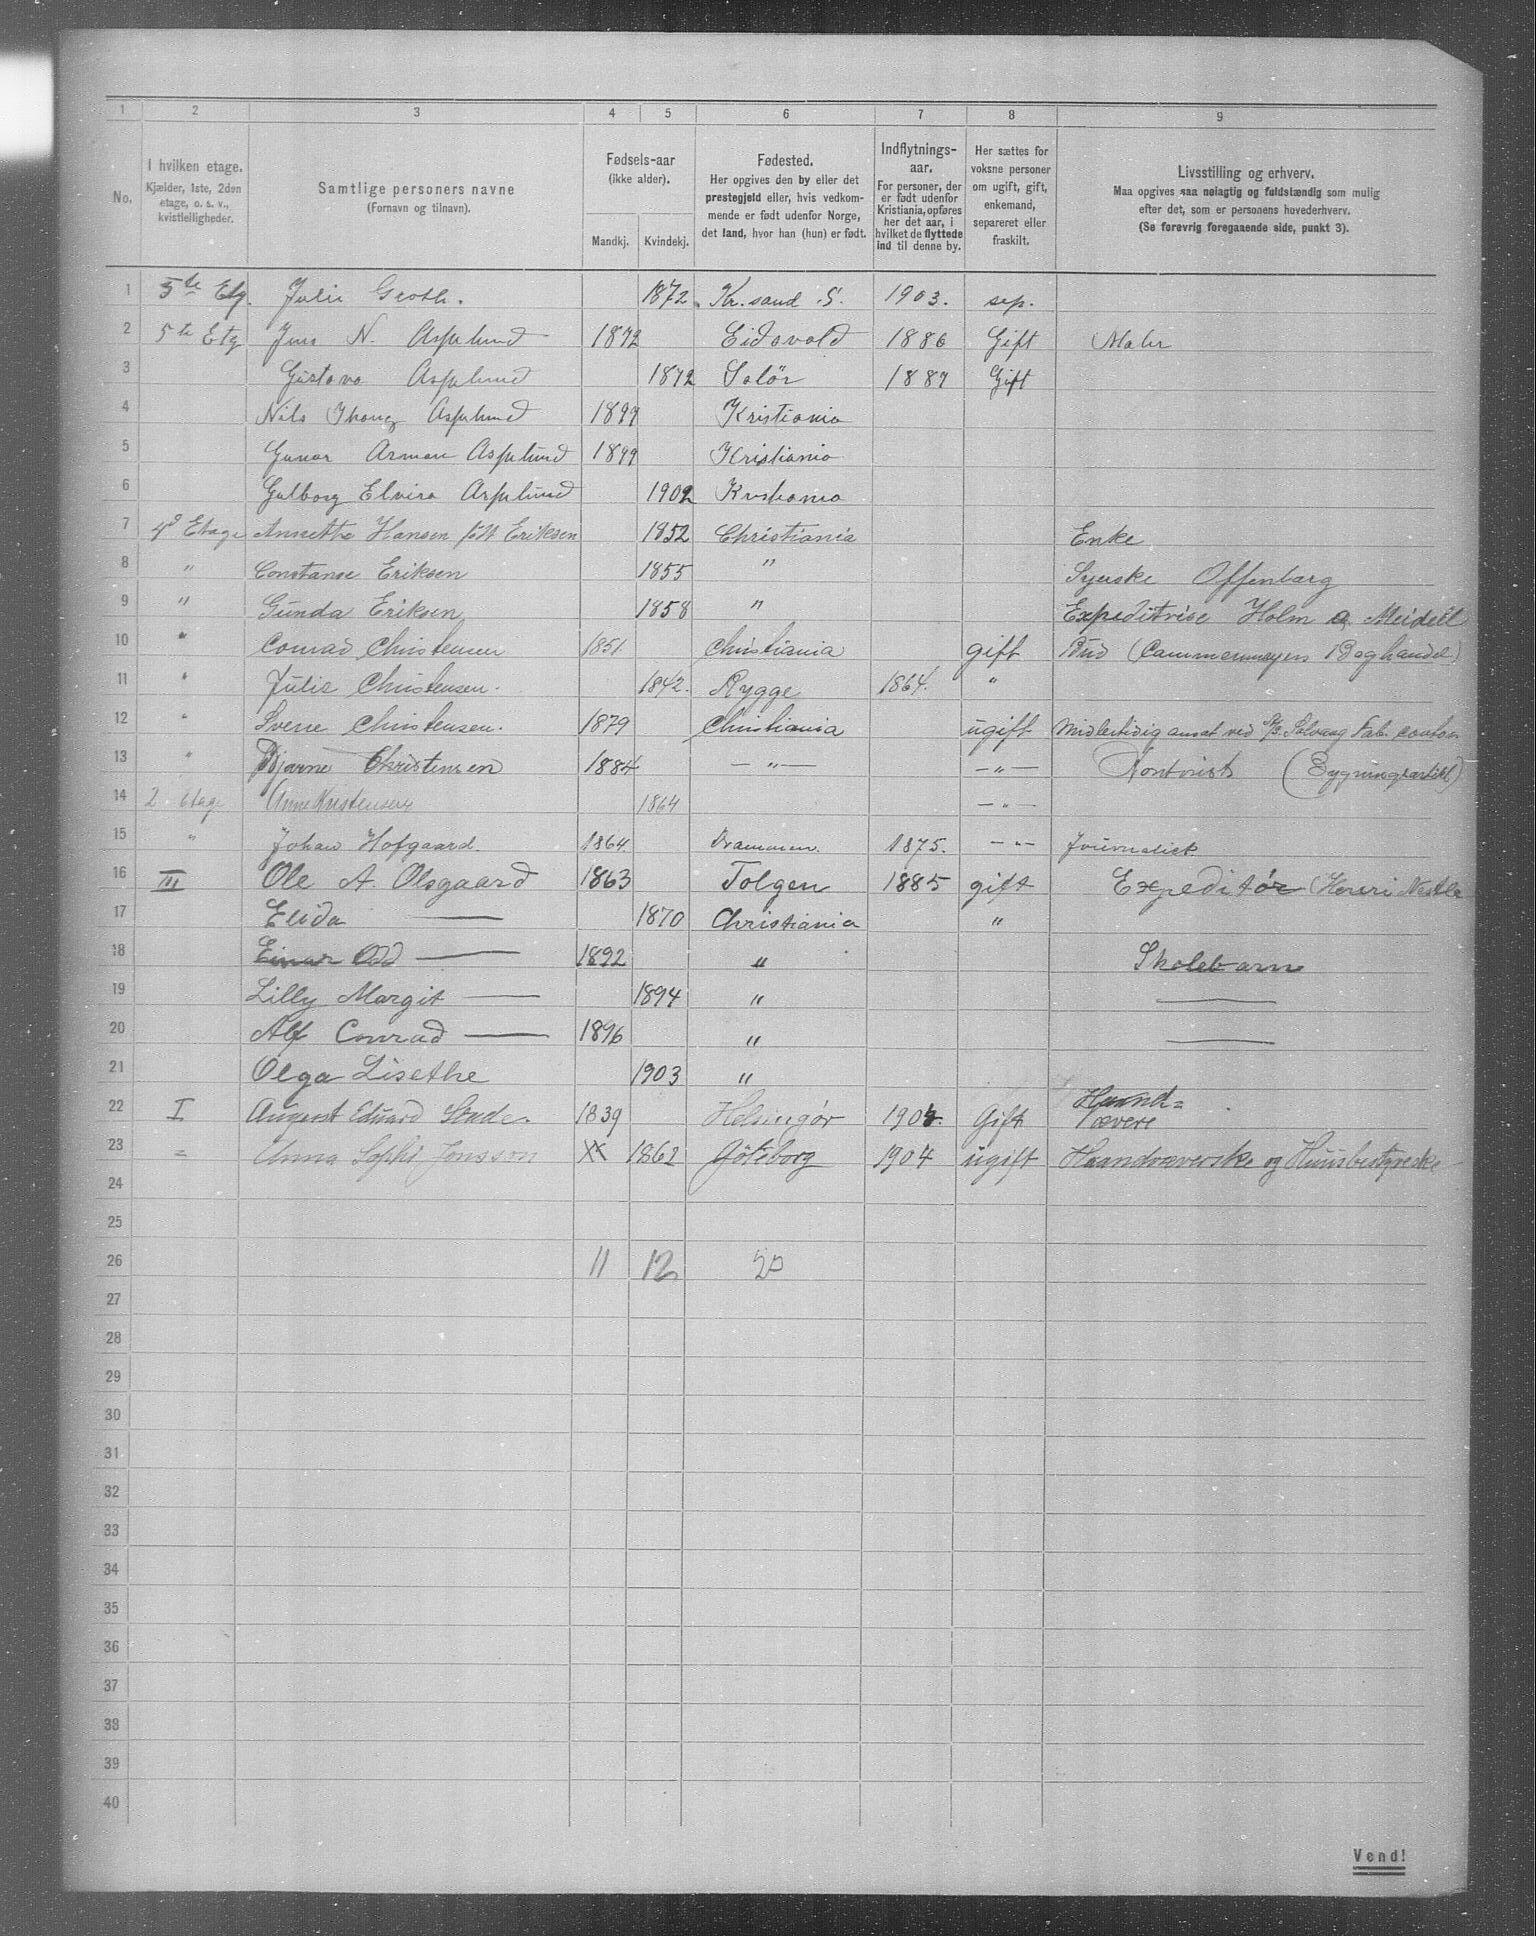 1 2 3 4 5 6 7 8 9
No.
I hvilken etage.
Kjælder, 1ste, 2den
etage, o. s. v.,
kvistleiligheder.
Samtlige personers navne
(Fornavn og tilnavn).
Fødsels-aar
(ikke alder).
Mandkj. Kvindekj.
Fødested.
Her opgives den by eller det
prestegjeld eller, hvis vedkom-
mende er født udenfor Norge,
det land, hvor han (hun) er født.
Indflytnings-
aar.
For personer, der
er født udenfor
Kristiania, opføres
her det aar, i
hvilket de flyttede
ind til denne by.
Her sættes for
voksne personer
om ugift, gift,
enkemand,
separeret eller
fraskilt.
Livsstilling og erhverv.
Maa opgives saa nøiagtig og fuldstændig som mulig
efter det, som er personens hovederhverv.
(Se forøvrig foregaaende side, punkt 3).
1 5te Etg. Julie Groth. 1872 Kr.sand S. 1903. sep.
2 5te Etg Jens N. Asplund 1872 Eidsvold 1886 Gift Maler
3 Gustava Asplund 1872 Solör 1887 Gift
4 Nils Asplund 1897 Kristiania
5 Gunar Arman Asplund 1899 Kristiania
6 Gulborg Elvira Asplund 1902 Kristiania
7 4d Etage Annethe Hansen född Eriksen 1852 Christiania Enke
8 " Constanse Eriksen 1855 " Syerske Offenberg
9 " Gunda Eriksen 1858 " Expeditrise Holm & Meidell
10 " Conrad Christensen 1851 Christiania gift Bud (Cammermeyers Boghandel)
11 " Julie Christensen. 1842. Rygge 1864. "
12 " Sverre Christensen. 1879 Christiania ugift Midlertidig ansat ved A/S. Solvang Fab. contor
13 " Bjarne Christensen 1884 — " — — " — Kontorist (Bygningsartikl)
14 2 Etage Anne Kristensen 1864 — " —
15 " Johan Hofgaard. 1864 Drammen. 1875. — " — Journalist
16 III Ole A. Olsgaard 1863 Tolgen 1885 gift Expeditør (Henri Nestle
17 Elida — 1870 Christiania "
18 Einar Odd — 1892 " Skolebarn
19 Lilly Margit — 1894 " —
20 Alf Conrad — 1896 " —
21 Olga Lisethe 1903 "
22 I August Eduard 1839 Helsingør 1904. Gift Haand=
vævere
23 = Anna Sophi Jonsson 1862 Göteborg 1904 ugift Haandvæverske og Huusbestyreske
24
25
26 11 12
27
28
29
30
31
32
33
34
35
36
37
38
39
40
Vend!